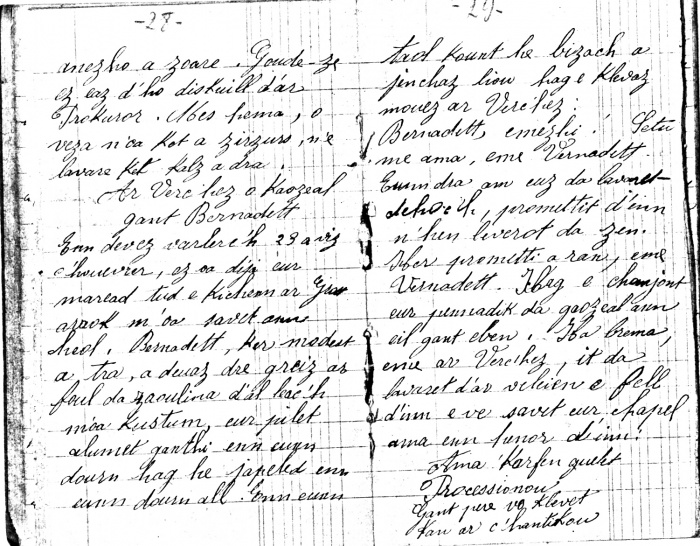 -27-
anezho a zoare. Goude-ze
ez eaz d'ho diskuill d'ar
Prokuror. Mes hema, o
veza n'oa ket a zirzurs, n'e
lavare ket kalz a dra.
Ar Verc'hez o kaozeal
gant Bernadett
Enn devez varlerc'h 23 a viz
c'houevrer, ez oa dija eur
maread tud e kichenn ar
arrok m'oa savet ann
heol. Bernadett, ker modest
a tra, a deuaz dre greiz ar
foul da zaoulina d'al lec'h
m'oa kustum, eur pilet
alumet ganthi enn eunn
dourn hag he japeled enn
eunn dourn all. Enn eunn
-29-
taol kount he bizach a
jinchaz liou hag e klevaz
mouez ar Verc'hez:
Bernadett, emezhi! Setu
me ama, eme Vernadett.
Eunn dra am euz da lavaret
dehoc'h, promettit d'inn
n'hen liverot da zen.
Her prometti a ran, eme
Vernadett. Hag e chomjont
eur pennadik da gaozeal ann
eil gant eben. Ha brema,
eme ar Verc'hez, it da
lavaret d'ar veleien e fell
d'inn e ve savet eur chapel
ama enn henor d'inn!
Ama karfen guelet
Processionou
Gant pere vo klevet
Kan ar c'hantikou